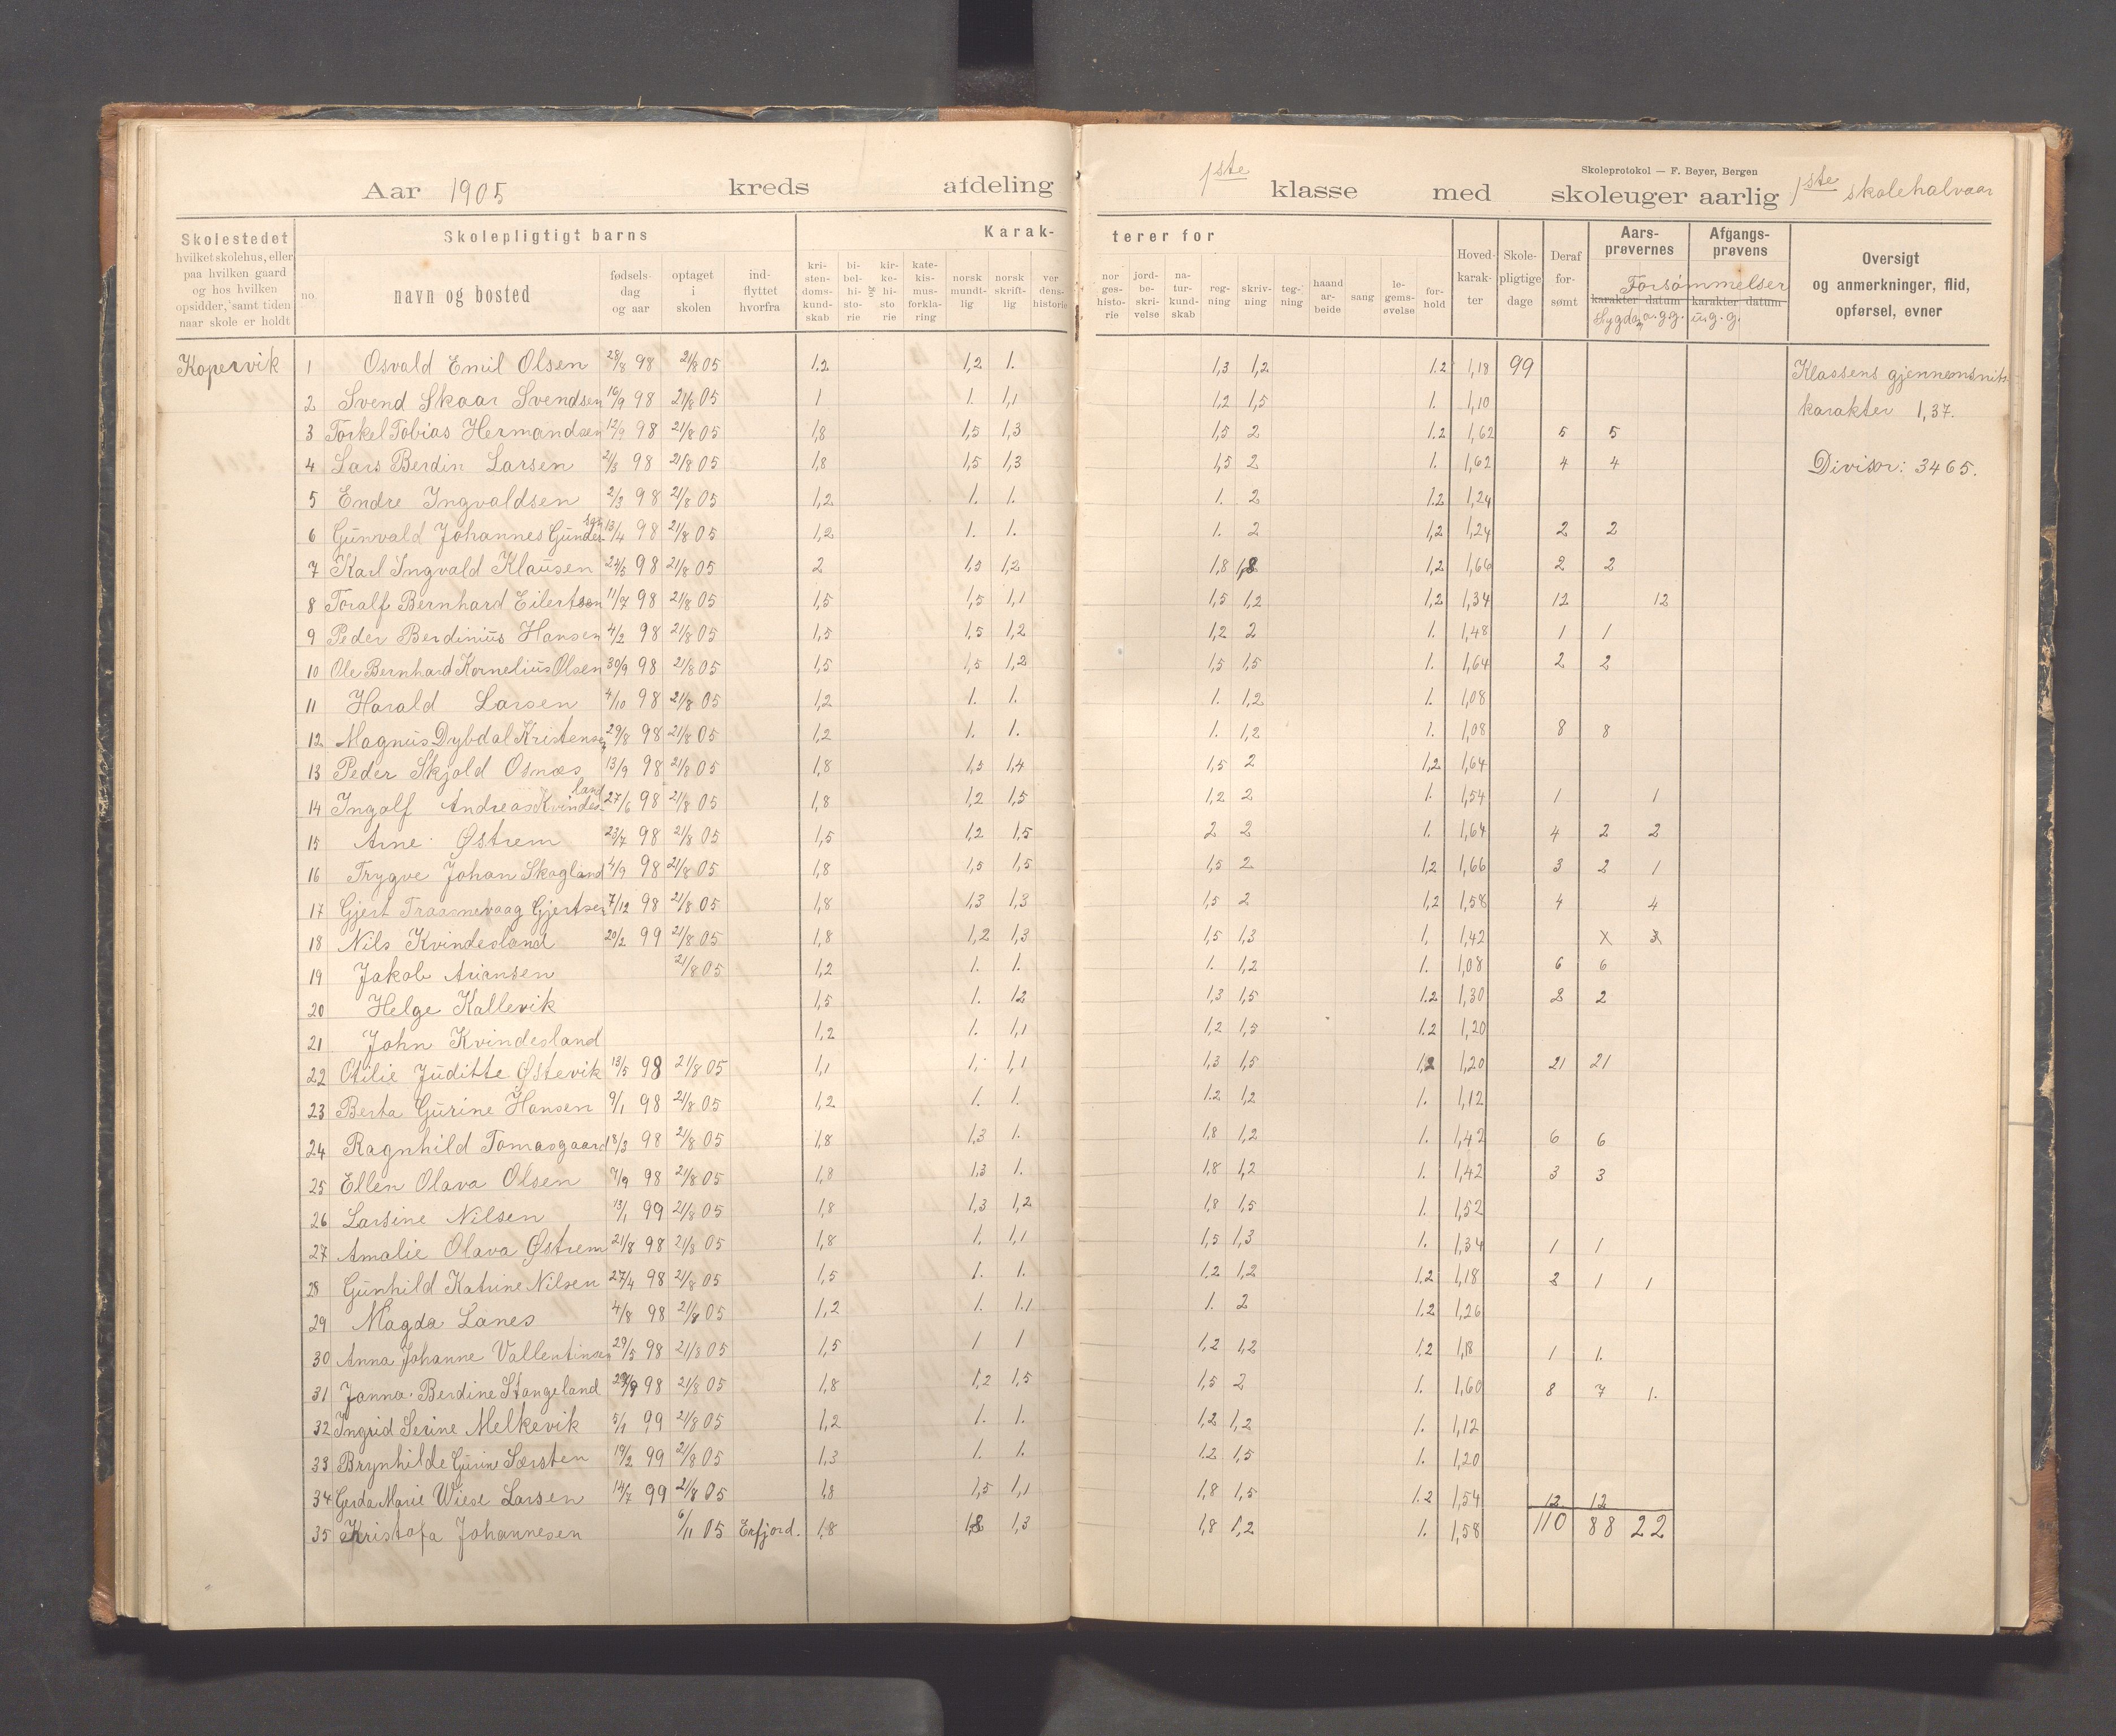 Skoleprotokol — F. Beyer, Bergen
Aar 1905 kreds afdeling 1ste klasse med skoleuger aarlig 1ste skolehalvaar
Skolestedet hvilket skolehus, eller paa hvilken gaard og hos hvilken opsidder, samt tiden naar skole er holdt
Skolepligtigt barns
no. navn og bosted fødselsdag og aar optaget i skolen indflyttet hvorfra
Karakterer for
kristendomskundskab bibelhistorie og kirkehistorie katekismusforklaring norsk mundtlig norsk skriftlig verdenshistorie norgeshistorie jordbeskrivelse naturkundskab regning skrivning tegning haandarbeide sang legemsøvelse forhold
Hovedkarakter Skolepligtige dage Deraf forsømt
Aarsprøvernes karakter datum Afgangsprøvens karakter datum
Forsømmelser
Sygdom a.g.g. u.g.g.
Oversigt og anmerkninger, flid, opførsel, evner
Kopervik 1 Osvald Emil Olsen 28/8 98 21/8 05 1.2 1,2 1. 1,3 1,2 1.2 1,18 99 Klassens gjennemsnits
2 Svend Skaar Svendsen 16/9 98 21/8 05 1 1. 1,1 1,2 1,5 1. 1,10 karakter 1,37.
3 Torkel Tobias Hermandsen 12/9 98 21/8 05 1,8 1,5 1,3 1,5 2 1.2 1,62 5 5
4 Lars Berdin Larsen 2/3 98 21/8 05 1,8 1,5 1,3 1,5 2 1. 1,62 4 4 Divisor: 3465.
5 Endre Ingvaldsen 2/3 98 21/8 05 1,2 1. 1. 1. 2 1.2 1,24
6 Gunvald Johannes Gundersen 13/4 98 21/8 05 1,2 1. 1. 1. 2 1,2 1,24 2 2
7 Karl Ingvald Klausen 24/5 98 21/8 05 2 1,5 1,2 1,8 1,8 1,2 1,66 2 2
8 Toralf Bernhard Eilertsen 11/7 98 21/8 05 1,5 1,5 1,1 1,5 1,2 1,2 1,34 12 12
9 Peder Berdinius Hansen 4/2 98 21/8 05 1,5 1,5 1,2 1,2 2 1. 1,48 1 1
10 Ole Bernhard Kornelius Olsen 30/9 98 21/8 05 1,5 1,5 1,2 1,5 1,5 1. 1,64 2 2
11 Harald Larsen 4/10 98 21/8 05 1,2 1. 1. 1. 1,2 1. 1,08
12 Magnus Dybdal Kristensen 29/8 98 21/8 05 1,2 1. 1. 1. 1,2 1. 1,08 8 8
13 Peder Skjold Osnæs 13/9 98 21/8 05 1,8 1,5 1,4 1,5 2 1,2 1,64
14 Ingolf Andreas Kvindesland 27/6 98 21/8 05 1,8 1,2 1,5 1,2 2 1. 1,54 1 1
15 Arne Østrem 23/7 98 21/8 05 1,5 1,2 1,5 2 2 1. 1,64 4 2 2
16 Trygve Johan Skogland 4/9 98 21/8 05 1,8 1,5 1,5 1,5 2 1,2 1,66 3 2 1
17 Gjert Trassnevaag Gjertsen 7/12 98 21/8 05 1,8 1,3 1,3 1,5 2 1,2 1,58 4 4
18 Nils Kvindesland 20/2 99 21/8 05 1,8 1,2 1,3 1,5 1,3 1. 1,42
19 Jakob 21/8 05 1,2 1. 1. 1. 1,2 1. 1,08 6 6
20 Helge Kallevik 1,5 1. 1,2 1,3 1,5 1.2 1,30 2 2
21 John Kvindesland 1,2 1. 1,1 1,2 1,5 1.2 1,20
22 Otilie Juditte Østevik 13/5 98 21/8 05 1,1 1, 1,1 1,3 1,5 1,2 1,20 21 21
23 Berta Gurine Hansen 9/1 98 21/8 05 1,2 1. 1. 1.2 1,2 1. 1,12
24 Ragnhild Tomasgaard 18/3 98 21/8 05 1,8 1,3 1. 1,8 1,2 1. 1,42 6 6
25 Ellen Olava Olsen 7/9 98 21/8 05 1,8 1,3 1. 1,8 1,2 1. 1,42 3 3
26 Larsine Nilsen 13/1 99 21/8 05 1,8 1,3 1,2 1,8 1,5 1. 1,52
27 Amalie Olava Østrem 21/8 98 21/8 05 1,8 1. 1,1 1,5 1,3 1. 1,34 1 1
28 Gunhild Katrine Nilsen 27/4 98 21/8 05 1,5 1. 1. 1.2 1,2 1.2 1,18 2 1 1
29 Magda Lanes 4/8 98 21/8 05 1,2 1. 1.1 1. 2 1.2 1,26
30 Anna Johanne Vallentinsen 29/5 98 21/8 05 1,5 1 1 1,2 1,2 1,2 1,18 1 1.
31 Janna Berdine Stangeland 29/9 98 21/8 05 1,8 1,2 1,5 1,5 2 1. 1,60 8 7 1.
32 Ingrid Serine Melkevik 5/1 99 21/8 05 1,2 1. 1. 1,2 1,2 1. 1,12
33 Brynhilde Gurine Sørsten 19/2 99 21/8 05 1,3 1. 1. 1.2 1,5 1. 1,20
34 Gerda Marie Wiese Larsen 14/7 99 21/8 05 1,8 1,5 1,1 1,8 1,5 1.2 1,54 12 12
35 Kristofa Johannesen 6/11 05 Erfjord. 1,8 1,8 1,3 1,8 1,2 1. 1,58 110 88 22